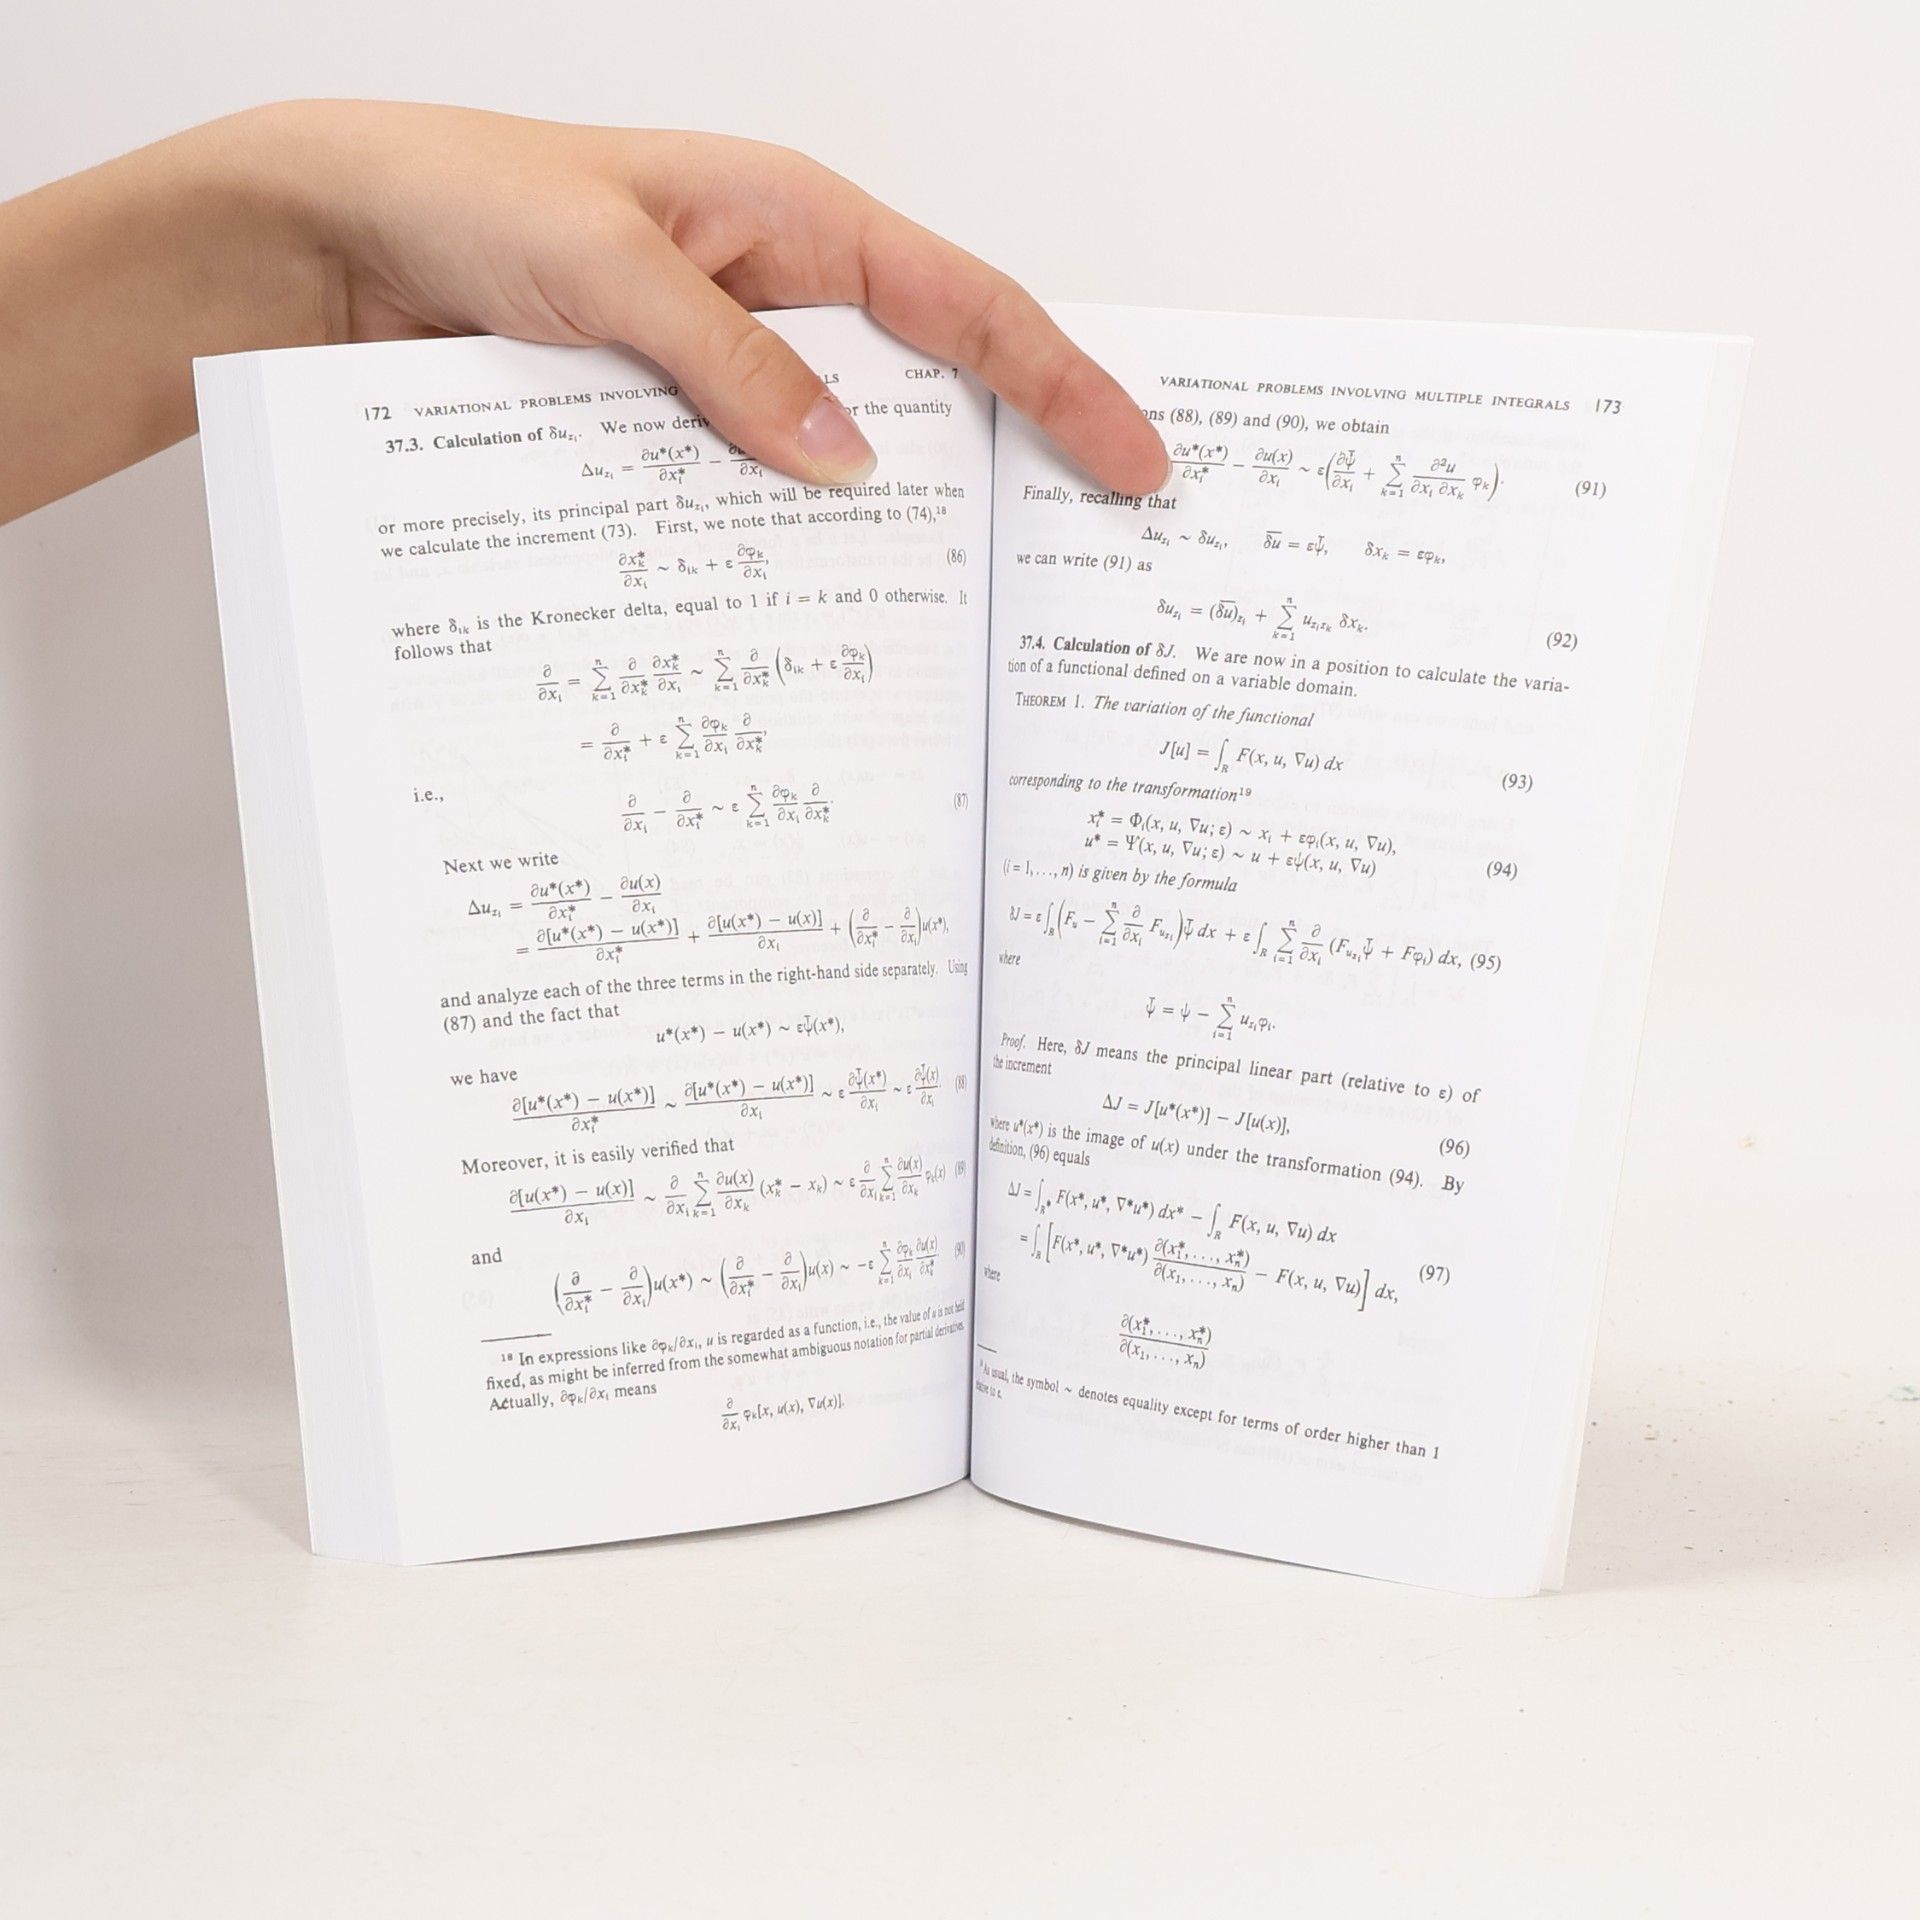 172 VARIATIONAL PROBLEMS INVOLVING LS CHAP. 7
37.3. Calculation of δu_{x_i}. We now deriv or the quantity
Δu_{x_i} = ∂u*(x*)/∂x_i* − ∂u /∂x_i
or more precisely, its principal part δu_{x_i}, which will be required later when
we calculate the increment (73). First, we note that according to (74),¹⁸
∂x_k*/∂x_i ~ δ_{ik} + ε ∂φ_k/∂x_i, (86)
where δ_{ik} is the Kronecker delta, equal to 1 if i = k and 0 otherwise. It
follows that
∂/∂x_i = ∑_{k=1}^n ∂/∂x_k* ∂x_k*/∂x_i ~ ∑_{k=1}^n ∂/∂x_k* (δ_{ik} + ε ∂φ_k/∂x_i)
= ∂/∂x_i* + ε ∑_{k=1}^n ∂φ_k/∂x_i ∂/∂x_k*,
i.e.,
∂/∂x_i − ∂/∂x_i* ~ ε ∑_{k=1}^n ∂φ_k/∂x_i ∂/∂x_k*. (87)
Next we write
Δu_{x_i} = ∂u*(x*)/∂x_i* − ∂u(x)/∂x_i
= ∂[u*(x*) − u(x*)]/∂x_i* + ∂[u(x*) − u(x)]/∂x_i + (∂/∂x_i* − ∂/∂x_i)u(x*),
and analyze each of the three terms in the right-hand side separately. Using
(87) and the fact that
u*(x*) − u(x*) ~ εψ̄(x*),
we have
∂[u*(x*) − u(x*)]/∂x_i* ~ ∂[u*(x*) − u(x*)]/∂x_i ~ ε ∂ψ̄(x*)/∂x_i ~ ε ∂ψ̄(x)/∂x_i. (88)
Moreover, it is easily verified that
∂[u(x*) − u(x)]/∂x_i ~ ∂/∂x_i ∑_{k=1}^n ∂u(x)/∂x_k (x_k* − x_k) ~ ε ∂/∂x_i ∑_{k=1}^n ∂u(x)/∂x_k φ_k(x) (89)
and
(∂/∂x_i* − ∂/∂x_i)u(x*) ~ (∂/∂x_i* − ∂/∂x_i)u(x) ~ −ε ∑_{k=1}^n ∂φ_k/∂x_i ∂u(x)/∂x_k*. (90)
¹⁸ In expressions like ∂φ_k/∂x_i, u is regarded as a function, i.e., the value of u is not held
fixed, as might be inferred from the somewhat ambiguous notation for partial derivatives.
Actually, ∂φ_k/∂x_i means
∂/∂x_i φ_k[x, u(x), ∇u(x)].
VARIATIONAL PROBLEMS INVOLVING MULTIPLE INTEGRALS 173
ns (88), (89) and (90), we obtain
∂u*(x*)/∂x_i* − ∂u(x)/∂x_i ~ ε(∂ψ̄/∂x_i + ∑_{k=1}^n ∂²u/∂x_i ∂x_k φ_k). (91)
Finally, recalling that
Δu_{x_i} ~ δu_{x_i}, δ̅u̅ = εψ̄, δx_k = εφ_k,
we can write (91) as
δu_{x_i} = (δ̅u̅)_{x_i} + ∑_{k=1}^n u_{x_i x_k} δx_k. (92)
37.4. Calculation of δJ. We are now in a position to calculate the varia-
tion of a functional defined on a variable domain.
THEOREM 1. The variation of the functional
J[u] = ∫_R F(x, u, ∇u) dx (93)
corresponding to the transformation¹⁹
x_i* = Φ_i(x, u, ∇u; ε) ~ x_i + εφ_i(x, u, ∇u),
u* = Ψ(x, u, ∇u; ε) ~ u + εψ(x, u, ∇u) (94)
(i = 1, . . . , n) is given by the formula
δJ = ε ∫_R (F_u − ∑_{i=1}^n ∂/∂x_i F_{u_{x_i}})ψ̄ dx + ε ∫_R ∑_{i=1}^n ∂/∂x_i (F_{u_{x_i}}ψ̄ + Fφ_i) dx, (95)
where
ψ̄ = ψ − ∑_{i=1}^n u_{x_i}φ_i.
Proof. Here, δJ means the principal linear part (relative to ε) of
the increment
ΔJ = J[u*(x*)] − J[u(x)], (96)
where u*(x*) is the image of u(x) under the transformation (94). By
definition, (96) equals
ΔJ = ∫_{R*} F(x*, u*, ∇*u*) dx* − ∫_R F(x, u, ∇u) dx
= ∫_R [F(x*, u*, ∇*u*) ∂(x_1*, . . . , x_n*)/∂(x_1, . . . , x_n) − F(x, u, ∇u)] dx, (97)
where
∂(x_1*, . . . , x_n*)/∂(x_1, . . . , x_n)
¹⁹ As usual, the symbol ~ denotes equality except for terms of order higher than 1
relative to ε.